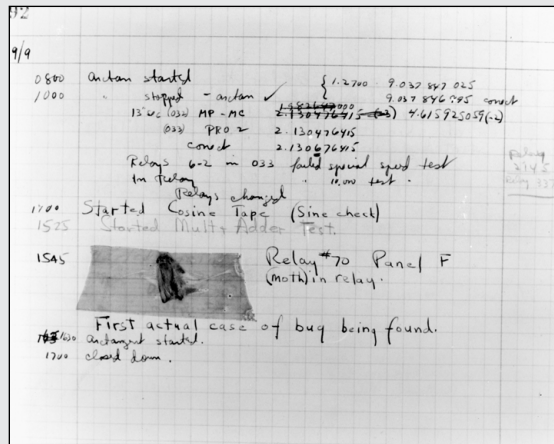 92
9/9
0800 arctan started { 1.2700 9.037 847 025
1000 " stopped - arctan ✓ 9.037 846 995 correct
13"uc (032) MP-MC 2.130476415 (-3) 4.615925059(-2)
(033) PRO 2 2.130476415
correct 2.130676415
Relays 6-2 in 033 failed special speed test
In Relay " 10.000 test.
Relays changed
1700 Started Cosine Tape (Sine check)
1525 Started Mult+Adder Test.
1545 Relay #70 Panel F
(moth) in relay.
First actual case of bug being found.
1630 arctangent started.
1700 closed down.